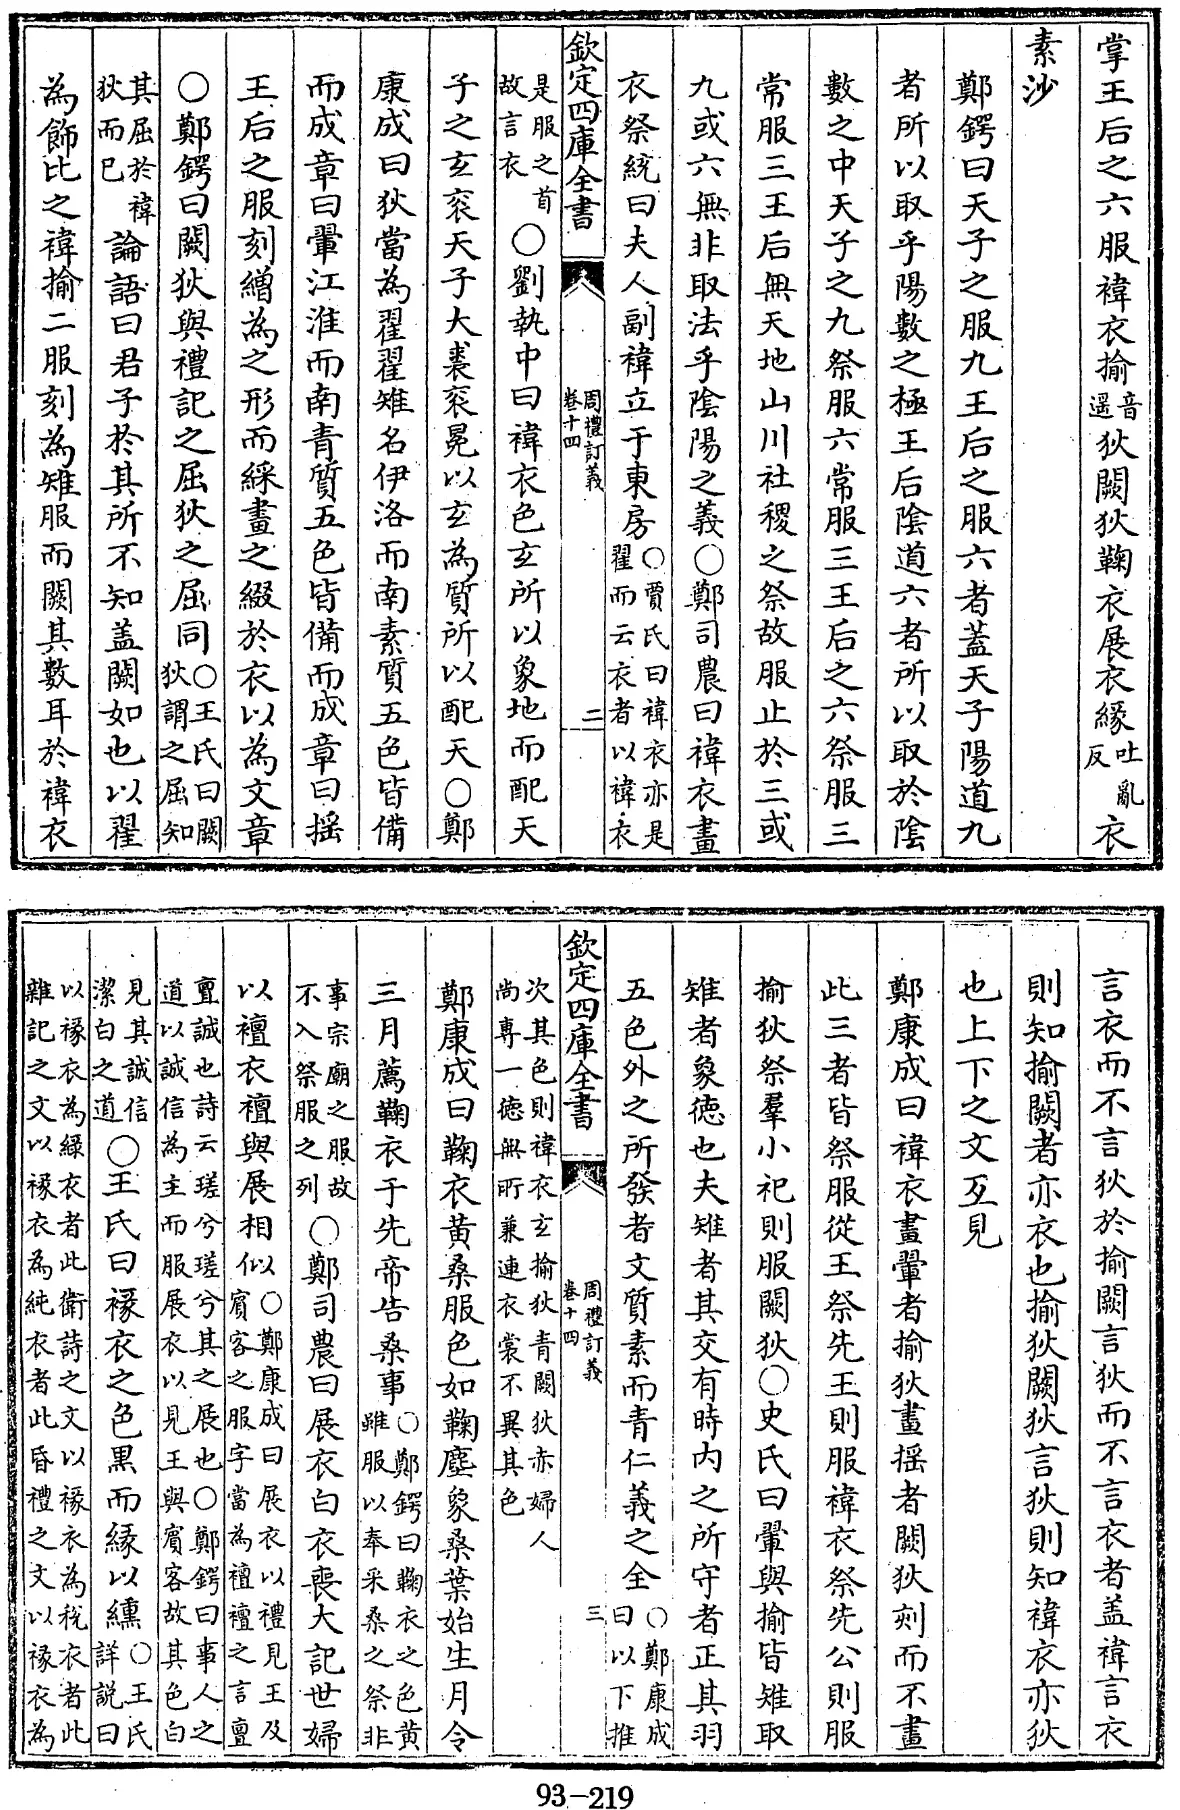 掌王后之六服褘衣揄音遥狄闕狄鞠衣展衣緣吐亂反衣
素沙
鄭鍔曰天子之服九王后之服六者蓋天子陽道九
者所以取乎陽數之極王后陰道六者所以取於陰
數之中天子之九祭服六常服三王后之六祭服三
常服三王后無天地山川社稷之祭故服止於三或
九或六無非取法乎陰陽之義○鄭司農曰褘衣畫
衣祭統曰夫人副褘立于東房○賈氏曰褘衣亦是翟而云衣者以褘衣
是服之首故言衣○劉執中曰褘衣色玄所以象地而配天
子之玄衮天子大裘衮冕以玄為質所以配天○鄭
康成曰狄當為翟翟雉名伊洛而南素質五色皆備
而成章曰翬江淮而南青質五色皆備而成章曰揺
王后之服刻繒為之形而綵畫之綴於衣以為文章
○鄭鍔曰闕狄與禮記之屈狄之屈同○王氏曰闕狄謂之屈知
其屈於褘狄而已論語曰君子於其所不知盖闕如也以翟
為飾比之褘揄二服刻為雉服而闕其數耳於褘衣
欽定四庫全書
周禮訂義
卷十四
二
言衣而不言狄於揄闕言狄而不言衣者盖褘言衣
則知揄闕者亦衣也揄狄闕狄言狄則知褘衣亦狄
也上下之文互見
鄭康成曰褘衣畫翬者揄狄畫揺者闕狄刻而不畫
此三者皆祭服從王祭先王則服褘衣祭先公則服
揄狄祭羣小祀則服闕狄○史氏曰翬與揄皆雉取
雉者象德也夫雉者其交有時内之所守者正其羽
五色外之所發者文質素而青仁義之全○鄭康成曰以下推
次其色則褘衣玄揄狄青闕狄赤婦人尚專一德無所兼連衣裳不異其色
鄭康成曰鞠衣黄桑服色如鞠塵象桑葉始生月令
三月薦鞠衣于先帝告桑事○鄭鍔曰鞠衣之色黄雖服以奉采桑之祭非
事宗廟之服故不入祭服之列○鄭司農曰展衣白衣喪大記世婦
以襢衣襢與展相似○鄭康成曰展衣以禮見王及賓客之服字當為襢襢之言亶
亶誠也詩云瑳兮瑳兮其之展也○鄭鍔曰事人之道以誠信為主而服展衣以見王與賓客故其色白
見其誠信潔白之道○王氏曰褖衣之色黒而緣以纁○王氏詳説曰
以褖衣為緑衣者此衛詩之文以褖衣為税衣者此雜記之文以褖衣為純衣者此昏禮之文以褖衣為
欽定四庫全書
周禮訂義
卷十四
三
93-219